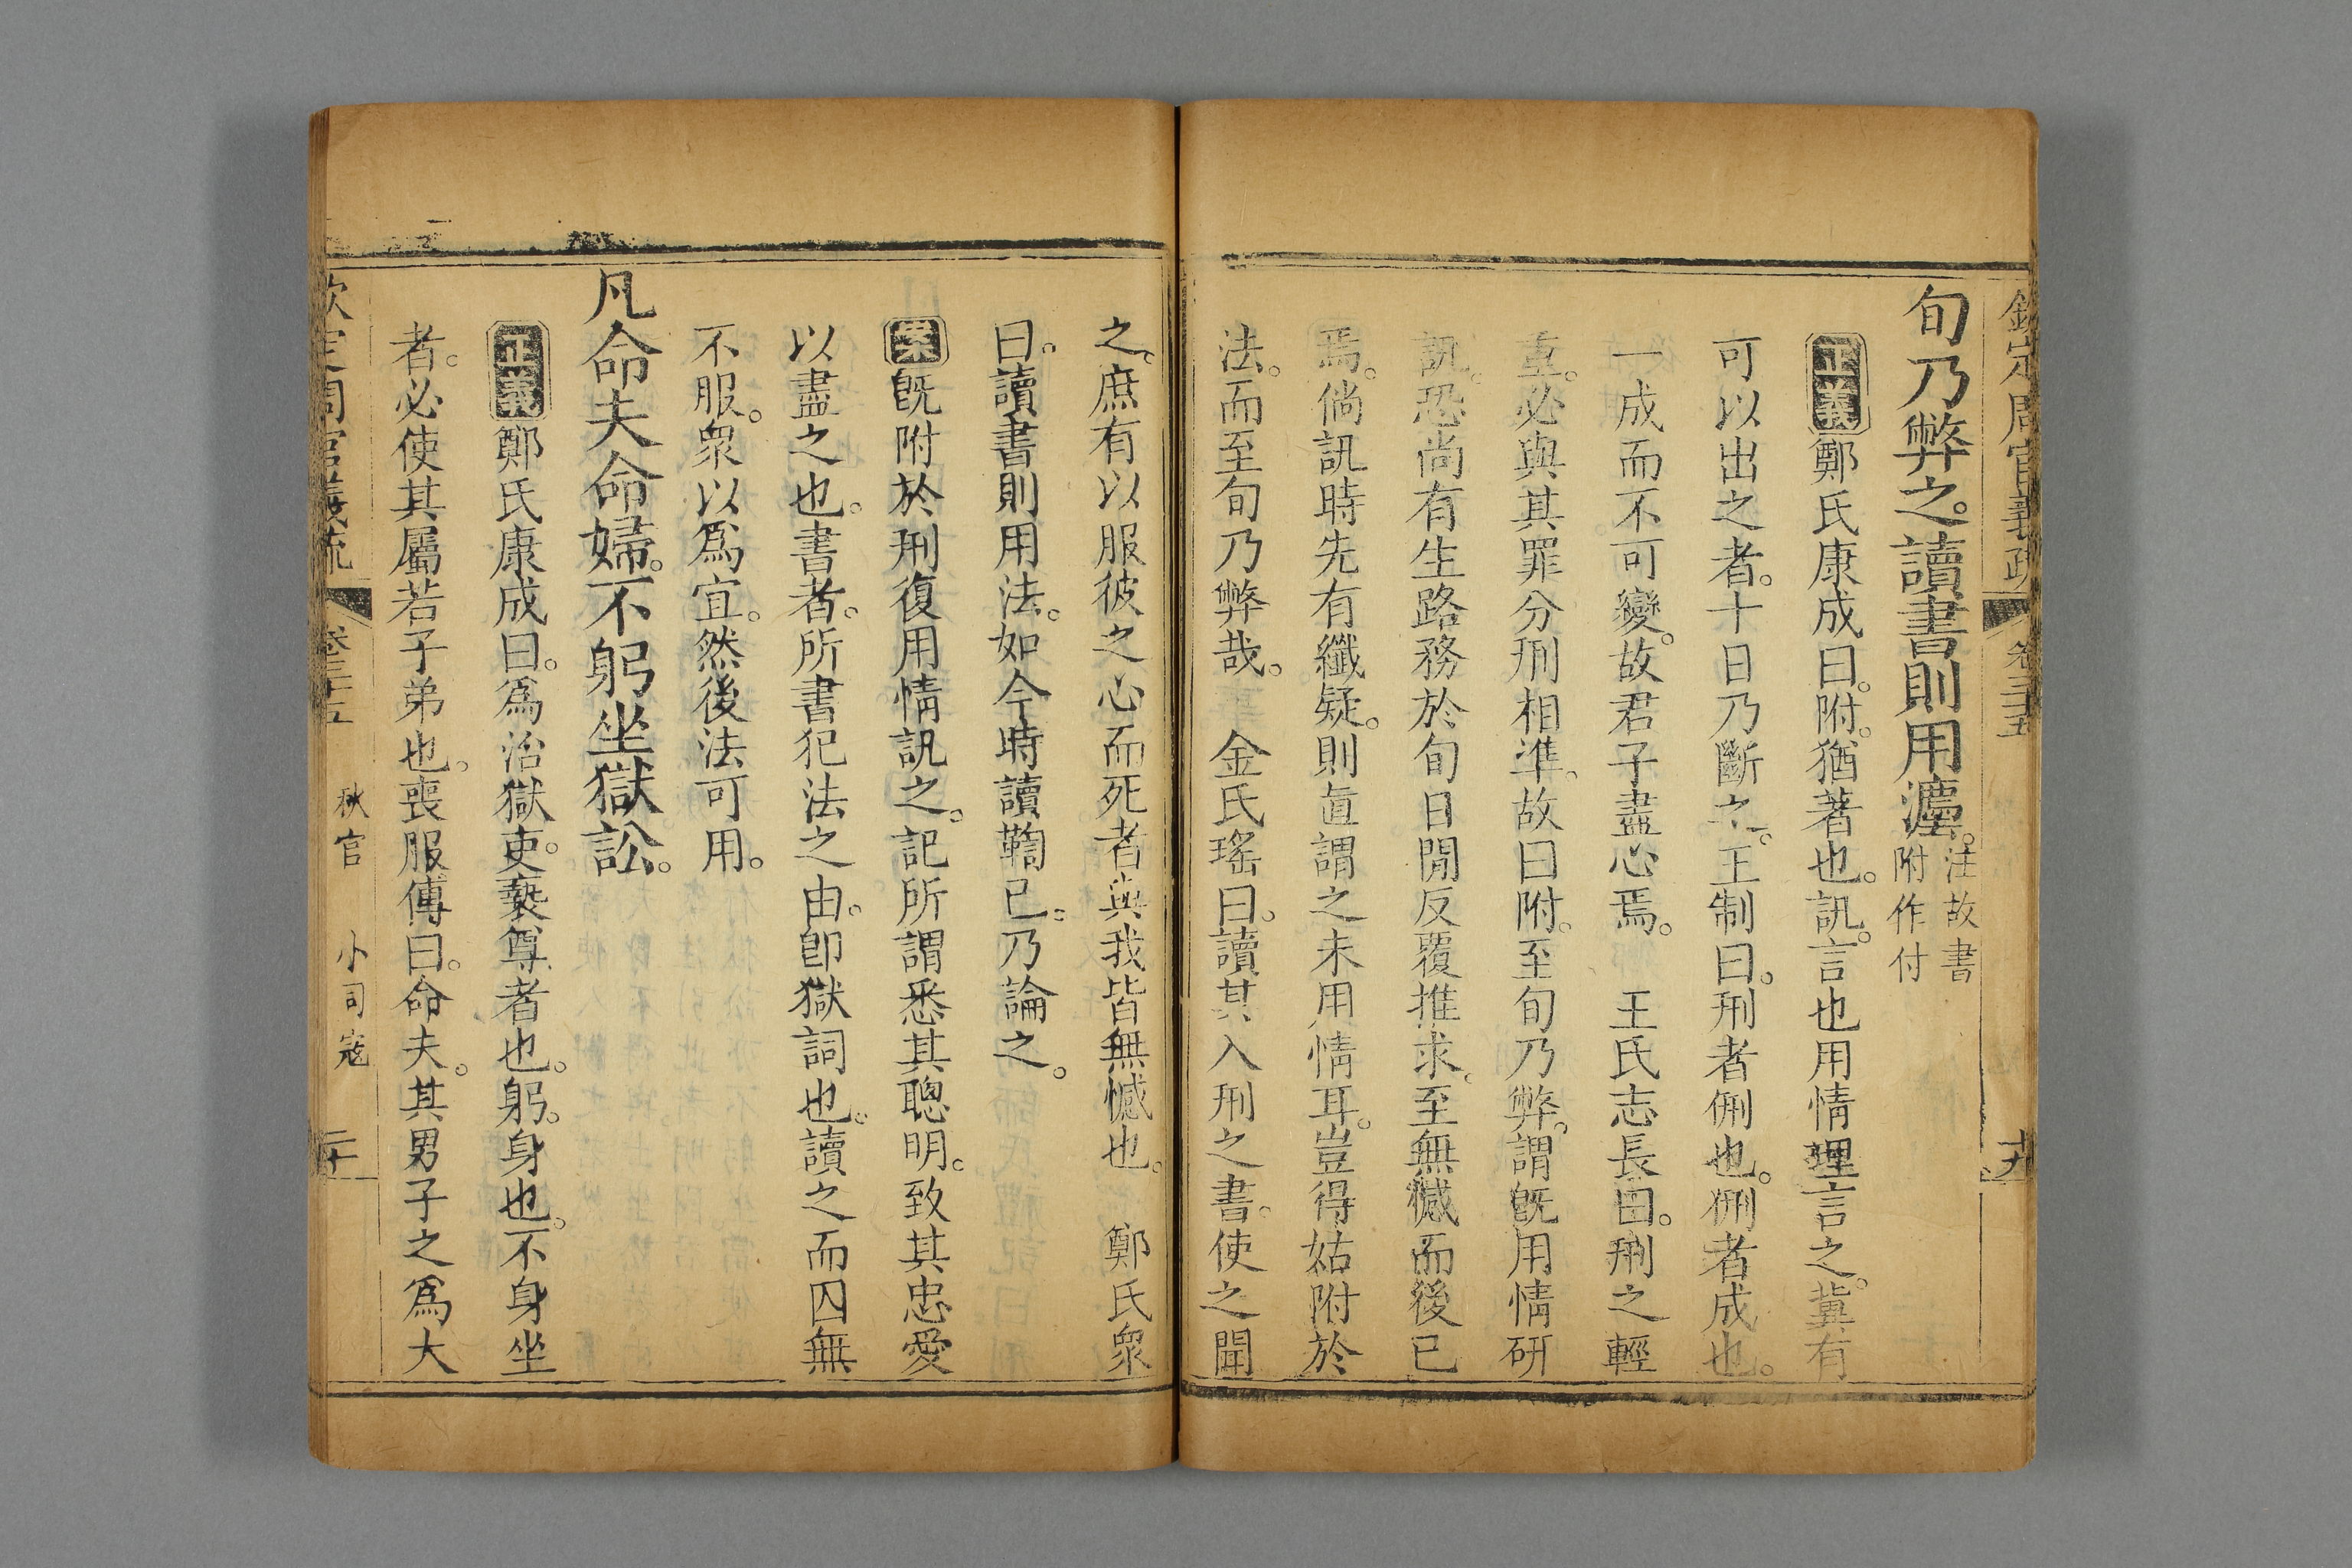 欽定周官義疏 卷三十五 十九
旬乃弊之。讀書則用灋。注故書附作付
正義鄭氏康成曰。附。猶著也。訊。言也用情理言之。冀有
可以出之者。十日乃斷之。王制曰。刑者侀也。侀者成也。
一成而不可變。故君子盡心焉。 王氏志長曰。刑之輕
重。必與其罪分刑相準。故曰附。至旬乃弊。謂旣用情研
訊。恐尚有生路務於旬日閒反覆推求。至無憾而後已
焉。倘訊時先有纖疑。則直謂之未用情耳。豈得姑附於
法。而至旬乃弊哉。 金氏瑤曰。讀其入刑之書。使之聞
之。庶有以服彼之心而死者與我皆無憾也。 鄭氏衆
曰。讀書則用法。如今時讀鞫已。乃論之。
案旣附於刑復用情訊之。記所謂悉其聰明。致其忠愛
以盡之也。書者。所書犯法之由。卽獄詞也。讀之而囚無
不服。衆以爲宜。然後法可用。
凡命夫命婦。不躬坐獄訟。
正義鄭氏康成曰。爲治獄吏褻尊者也。躬。身也。不身坐
者。必使其屬若子弟也。喪服傳曰。命夫。其男子之爲大
欽定周官義疏 卷三十五 秋官 小司寇 二十